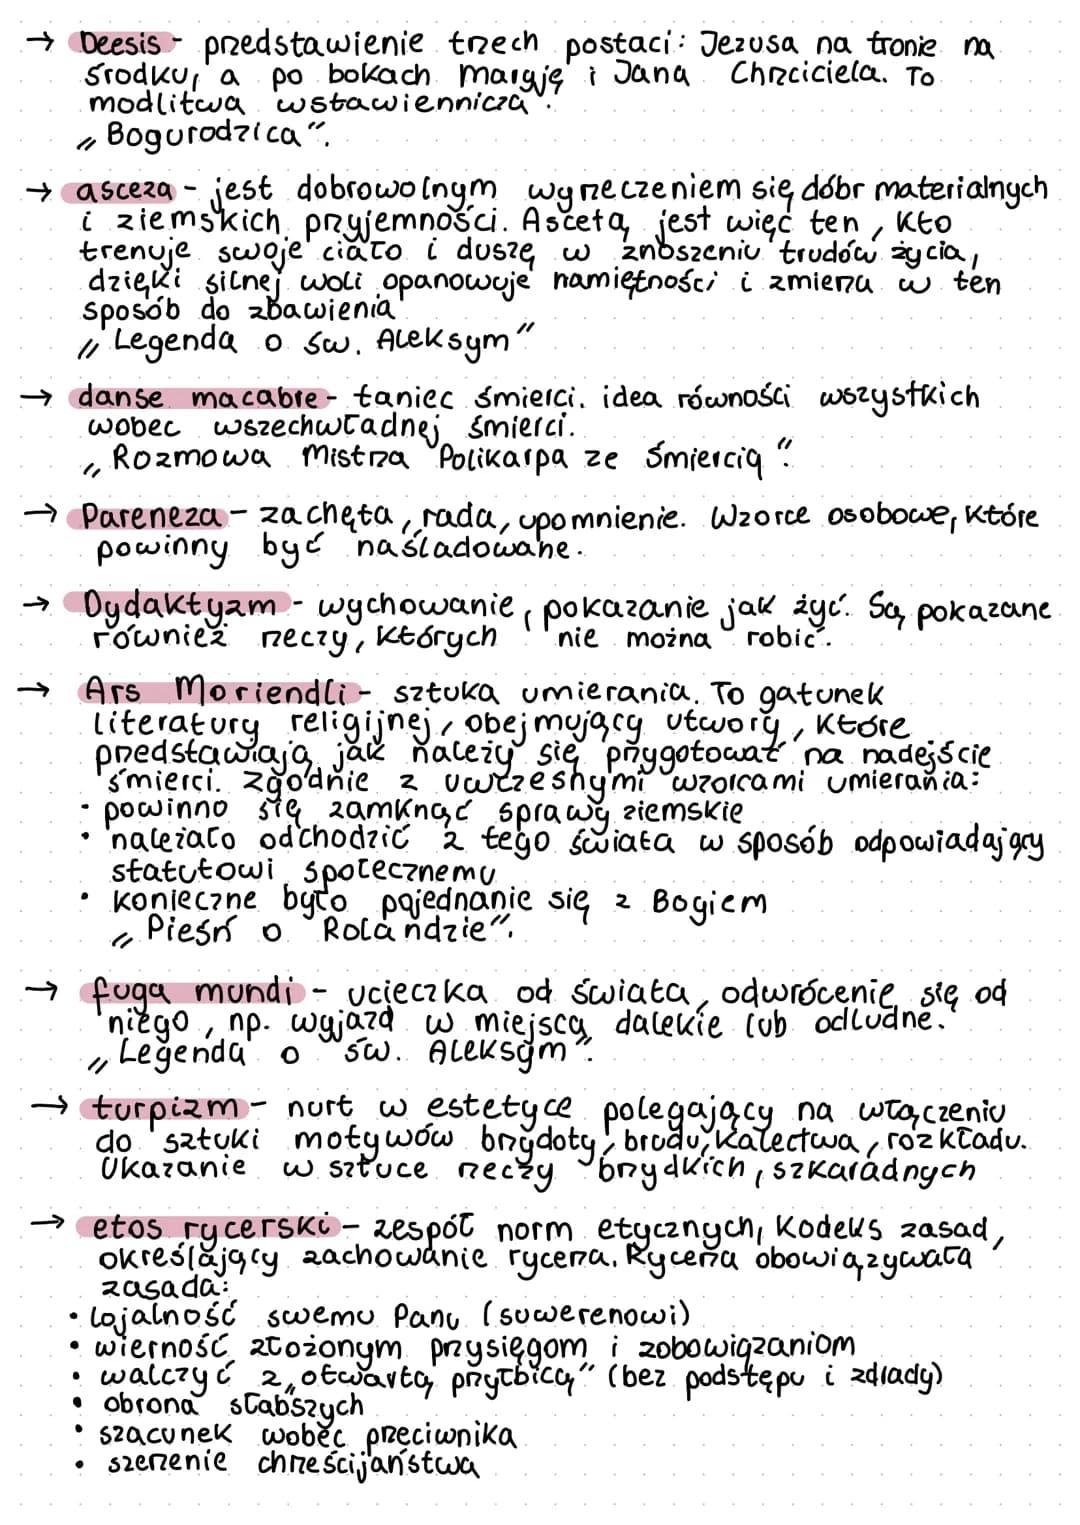 → Deesis - przedstawienie trzech postaci: Jezusa na tronie na
środku, a po bokach Maryję i Jana Chrzciciela. To
modlitwa wstawiennicza.
„Bogurodzica".
→ asceza - jest dobrowolnym wyrzeczeniem się dóbr materialnych
i ziemskich przyjemności. Ascetą jest więc ten, kto
trenuje swoje ciało i duszę w znoszeniu trudów życia,
dzięki silnej woli opanowuje namiętności i zmierza w ten
sposób do zbawienia
„Legenda o św. Aleksym"
→ danse macabre - taniec śmierci. idea równości wszystkich
wobec wszechwładnej śmierci.
„Rozmowa Mistrza Polikarpa ze Śmiercią".
→ Pareneza - zachęta, rada, upomnienie. Wzorce osobowe, które
powinny być naśladowane.
→ Dydaktyzm - wychowanie, pokazanie jak żyć. Są pokazane
również rzeczy, których nie można robić.
→ Ars Moriendi - sztuka umierania. To gatunek
literatury religijnej, obejmujący utwory, które
przedstawiają, jak należy się przygotować na nadejście
śmierci. Zgodnie z uwczesnymi wzorcami umierania:
• powinno się zamknąć sprawy ziemskie
• należało odchodzić z tego świata w sposób odpowiadający
statutowi społecznemu
• konieczne było pojednanie się z Bogiem
„Pieśń o Rolandzie".
→ fuga mundi - ucieczka od świata, odwrócenie się od
niego, np. wyjazd w miejsca dalekie lub odludne.
„Legenda o św. Aleksym".
→ turpizm - nurt w estetyce polegający na włączeniu
do sztuki motywów brzydoty, brudu, kalectwa, rozkładu.
Ukazanie w sztuce rzeczy brzydkich, szkaradnych
→ etos rycerski - zespół norm etycznych, kodeks zasad,
określający zachowanie rycerza. Rycerza obowiązywała
zasada:
• lojalność swemu Panu (suwerenowi)
• wierność złożonym przysięgom i zobowiązaniom
• walczyć z „otwartą przyłbicą" (bez podstępu i zdrady)
• obrona słabszych
• szacunek wobec przeciwnika
• szerzenie chrześcijaństwa